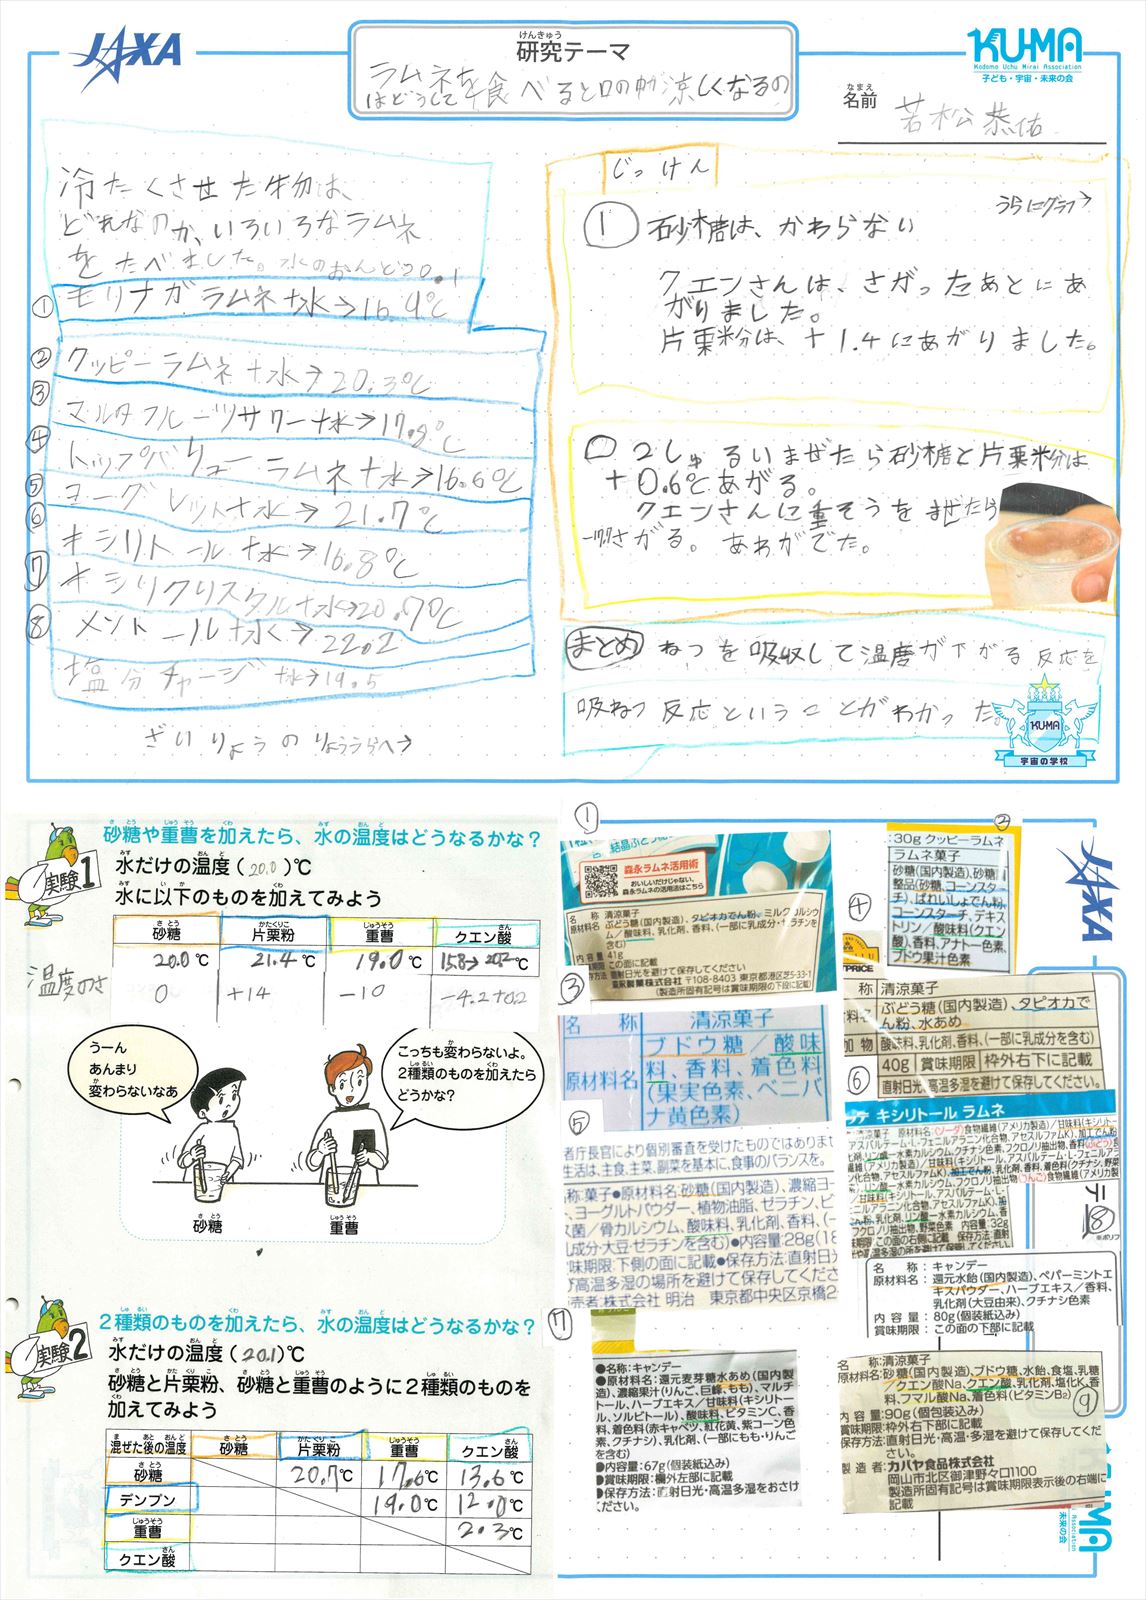 JAXA
研究テーマ
ラムネを食べると口の中が涼しくなるの
はどうして
KU-MA
Kodomo Uchu Mirai Association
子ども・宇宙・未来の会
名前 若松恭佑
冷たくさせた物は、
どれなのか、いろいろなラムネ
をたべました。水のおんど20.1
① モリナガラムネ+水→16.9℃
② クッピーラムネ+水→20.3℃
③ マルタフルーツサワー+水→17.8℃
④ トップバリューラムネ+水→16.6℃
⑤ ヨーグレット+水→21.7℃
⑥ キシリトール+水→16.8℃
⑦ キシリクリスタル+水→20.7℃
⑧ メントール+水→22.2
塩分チャージ+水→19.5
ざいりょうのりょううらへ→
じっけん
うらにグラフ→
1 砂糖は、かわらない
クエンさんは、さがったあとにあ
がりました。
片栗粉は、+1.4にあがりました。
2しゅるいまぜたら砂糖と片栗粉は
+0.6℃あがる。
クエンさんに重そうをまぜたら
一番さがる。あわがでた。
まとめ ねつを吸収して温度が下がる反応を
吸ねつ反応ということがわかった。
KUMA
宇宙の学校
実験1
砂糖や重曹を加えたら、水の温度はどうなるかな?
水だけの温度(20.0)℃
水に以下のものを加えてみよう
砂糖 片栗粉 重曹 クエン酸
20.0℃ 21.4℃ 19.0℃ 15.8→20.2℃
温度のさ 0 +14 -10 -4.2+0.2
うーん
あんまり
変わらないなあ
こっちも変わらないよ。
2種類のものを加えたら
どうかな?
砂糖 重曹
実験2
2種類のものを加えたら、水の温度はどうなるかな?
水だけの温度(20.1)℃
砂糖と片栗粉、砂糖と重曹のように2種類のものを
加えてみよう
混ぜた後の温度 砂糖 片栗粉 重曹 クエン酸
砂糖 20.7℃ 17.6℃ 13.6℃
デンプン 19.0℃ 12.0℃
重曹 2.3℃
クエン酸
①
森永ラムネ活用術
おいしいだけじゃない、
森永ラムネの活用法はこちら
名 称 清涼菓子
原材料名 ぶどう糖(国内製造)、タピオカでん粉、ミルクカルシウ
ム/酸味料、乳化剤、香料、(一部に乳成分・ゼラチンを
含む)
内容量 41g
賞味期限 この面に記載
保存方法 直射日光を避けて保存してください。
森永製菓株式会社 〒108-8403 東京都港区芝5-33-1
(製造所固有記号は賞味期限の下段に記載)
②
30g クッピーラムネ
ラムネ菓子
砂糖(国内製造)、砂糖
整品(砂糖、コーンスタ
チ)、ばれいしょでん粉、
コーンスターチ、デキス
トリン/酸味料(クエン
酸)、香料、アナトー色素、
ブドウ果汁色素
③
名 称 清涼菓子
原材料名 ブドウ糖/酸味
料、香料、着色料
(果実色素、ベニバ
ナ黄色素)
④
清涼菓子
ぶどう糖(国内製造)、タピオカで
ん粉、水あめ
加物 酸味料、乳化剤、香料、(一部に乳成分を含む)
40g 賞味期限 枠外右下に記載
直射日光、高温多湿を避けて保存してください。
⑤
者庁長官により個別審査を受けたものではありませ
生活は、主食、主菜、副菜を基本に、食事のバランスを。
称:菓子●原材料名:砂糖(国内製造)、濃縮ヨー
、ヨーグルトパウダー、植物油脂、ゼラチン、ビ
菌/骨カルシウム、酸味料、乳化剤、香料、(一
成分・大豆・ゼラチンを含む)●内容量:28g(18
味期限:下側の面に記載●保存方法:直射日光
高温多湿の場所を避けて保存してくださ
売者:株式会社 明治 東京都中央区京橋2
⑥
キシリトール ラムネ
⑦
●名称:キャンデー
●原材料名:還元麦芽糖水あめ(国内製
造)、濃縮果汁(りんご、巨峰、もも)、マルチ
トール、ハーブエキス/甘味料(キシリトー
ル、ソルビトール)、酸味料、ビタミンC、香
料、着色料(赤キャベツ、紅花黄、紫コーン色
素、クチナシ)、乳化剤、(一部にもも・りんご
を含む)
●内容量:67g(個装紙込み)
●賞味期限:欄外左部に記載
●保存方法:直射日光・高温多湿をおさけ
ください。
⑧
名 称:キャンデー
原材料名:還元水飴(国内製造)、ペパーミントエ
キスパウダー、ハーブエキス/香料、
乳化剤(大豆由来)、クチナシ色素
内容量:80g(個装紙込み)
賞味期限:この面の下部に記載
⑨
名 称:清涼菓子
原材料名:砂糖(国内製造)、ブドウ糖、水飴、食塩、乳糖
クエン酸Na、クエン酸、乳化剤、塩化K、香
料、フマル酸Na、着色料(ビタミンB₂)
内容量:90g(個包装込み)
賞味期限:枠外右下部に記載
保存方法:直射日光・高温・多湿を避けて保存してくだ
さい。
製造者:カバヤ食品株式会社
岡山市北区御津野々口1100
製造所固有記号は賞味期限表示後の右端に
記載
JAXA